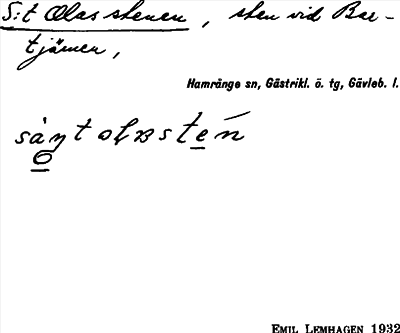 S:t Olas stenen, sten vid Bae-
tjärnen,
Hamränge sn, Gästrikl. ö. tg, Gävleb. l.
EMIL LEMHAGEN 1932